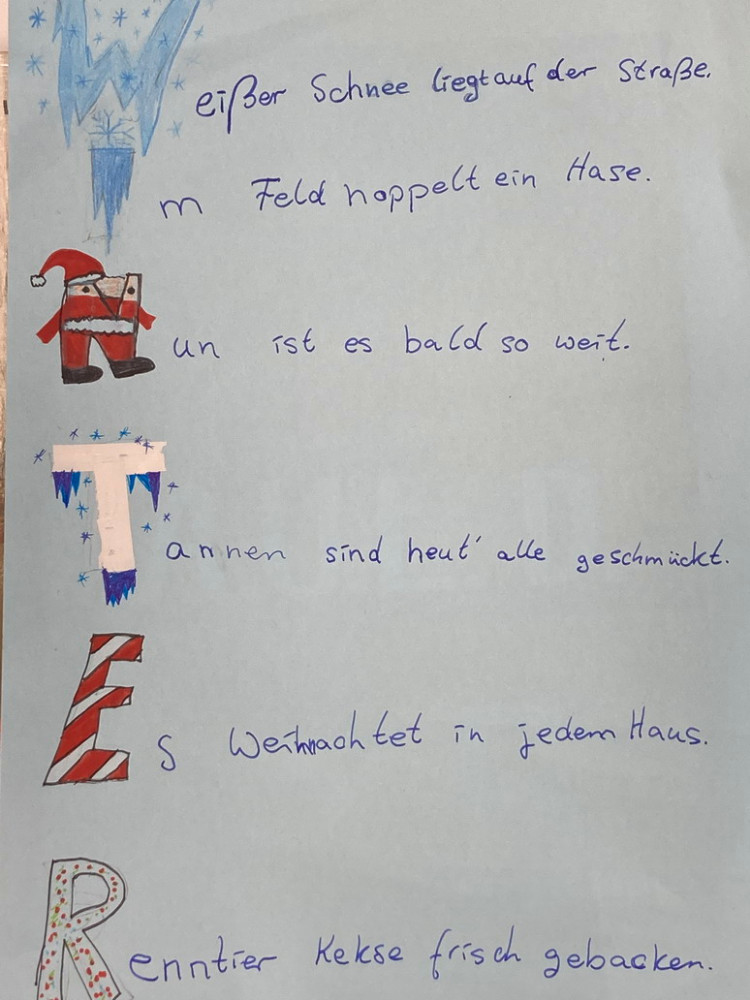 Weißer Schnee liegt auf der Straße.
Im Feld hoppelt ein Hase.
Nun ist es bald so weit.
Tannen sind heut' alle geschmückt.
Es Weihnachtet in jedem Haus.
Renntier Kekse frisch gebacken.